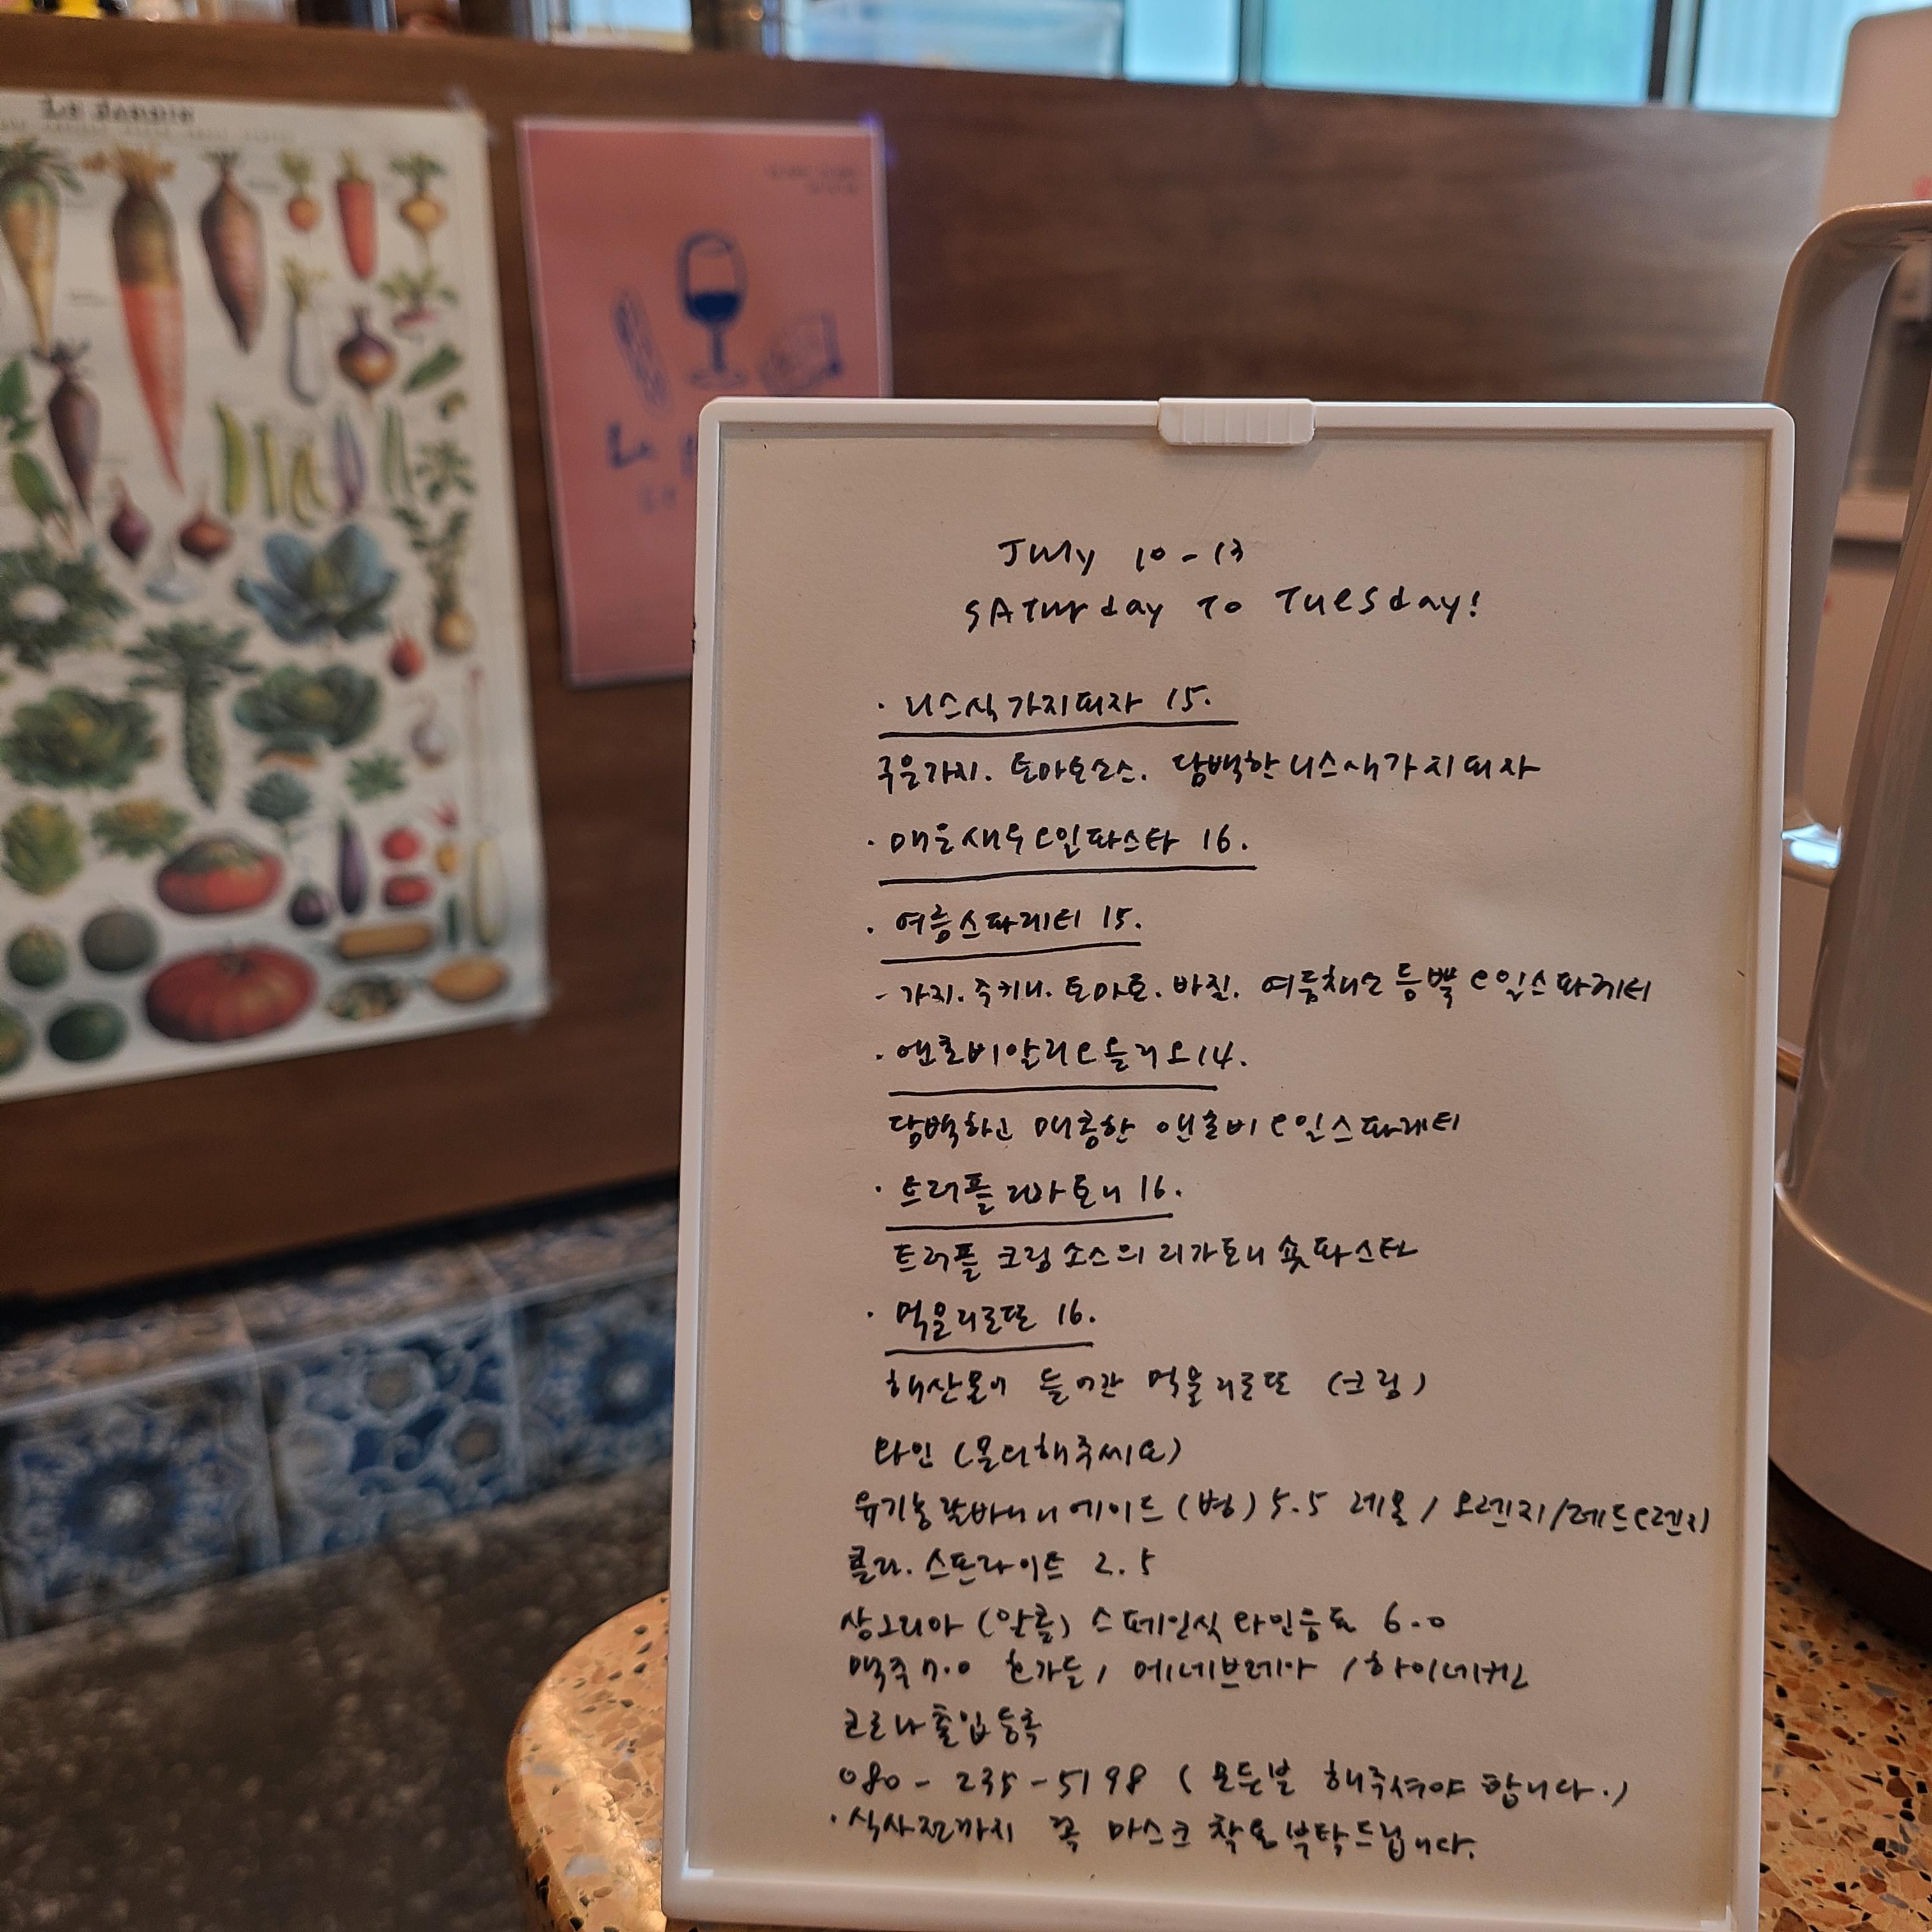 Le Jardin
July 10-13
SATurday To Tuesday!
· 니스식가지피자 15.
구운가지. 토마토소스. 담백한니스식가지피자
· 매운새우오일파스타 16.
· 여름스파게티 15.
- 가지.주키니.토마토.바질. 여름채소듬뿍오일스파게티
· 엔초비알리오올리오14.
담백하고 매콤한 앤초비오일스파게티
· 트러플리가토니 16.
트러플 크림소스의 리가토니숏파스타
· 먹물리조또 16.
해산물이 들어간 먹물리조또 (크림)
와인 (문의해주세요)
유기농팔바니니에이드 (병) 5.5 레몬 / 오렌지/레드오렌지
콜라.스프라이트 2.5
상그리아 (알콜) 스페인식와인음료 6.0
맥주7.0 호가든/ 에네브레아 /하이네켄
코로나출입등록
080-235-5198 (모든분 해주셔야 합니다.)
·식사전까지 꼭 마스크착용부탁드립니다.